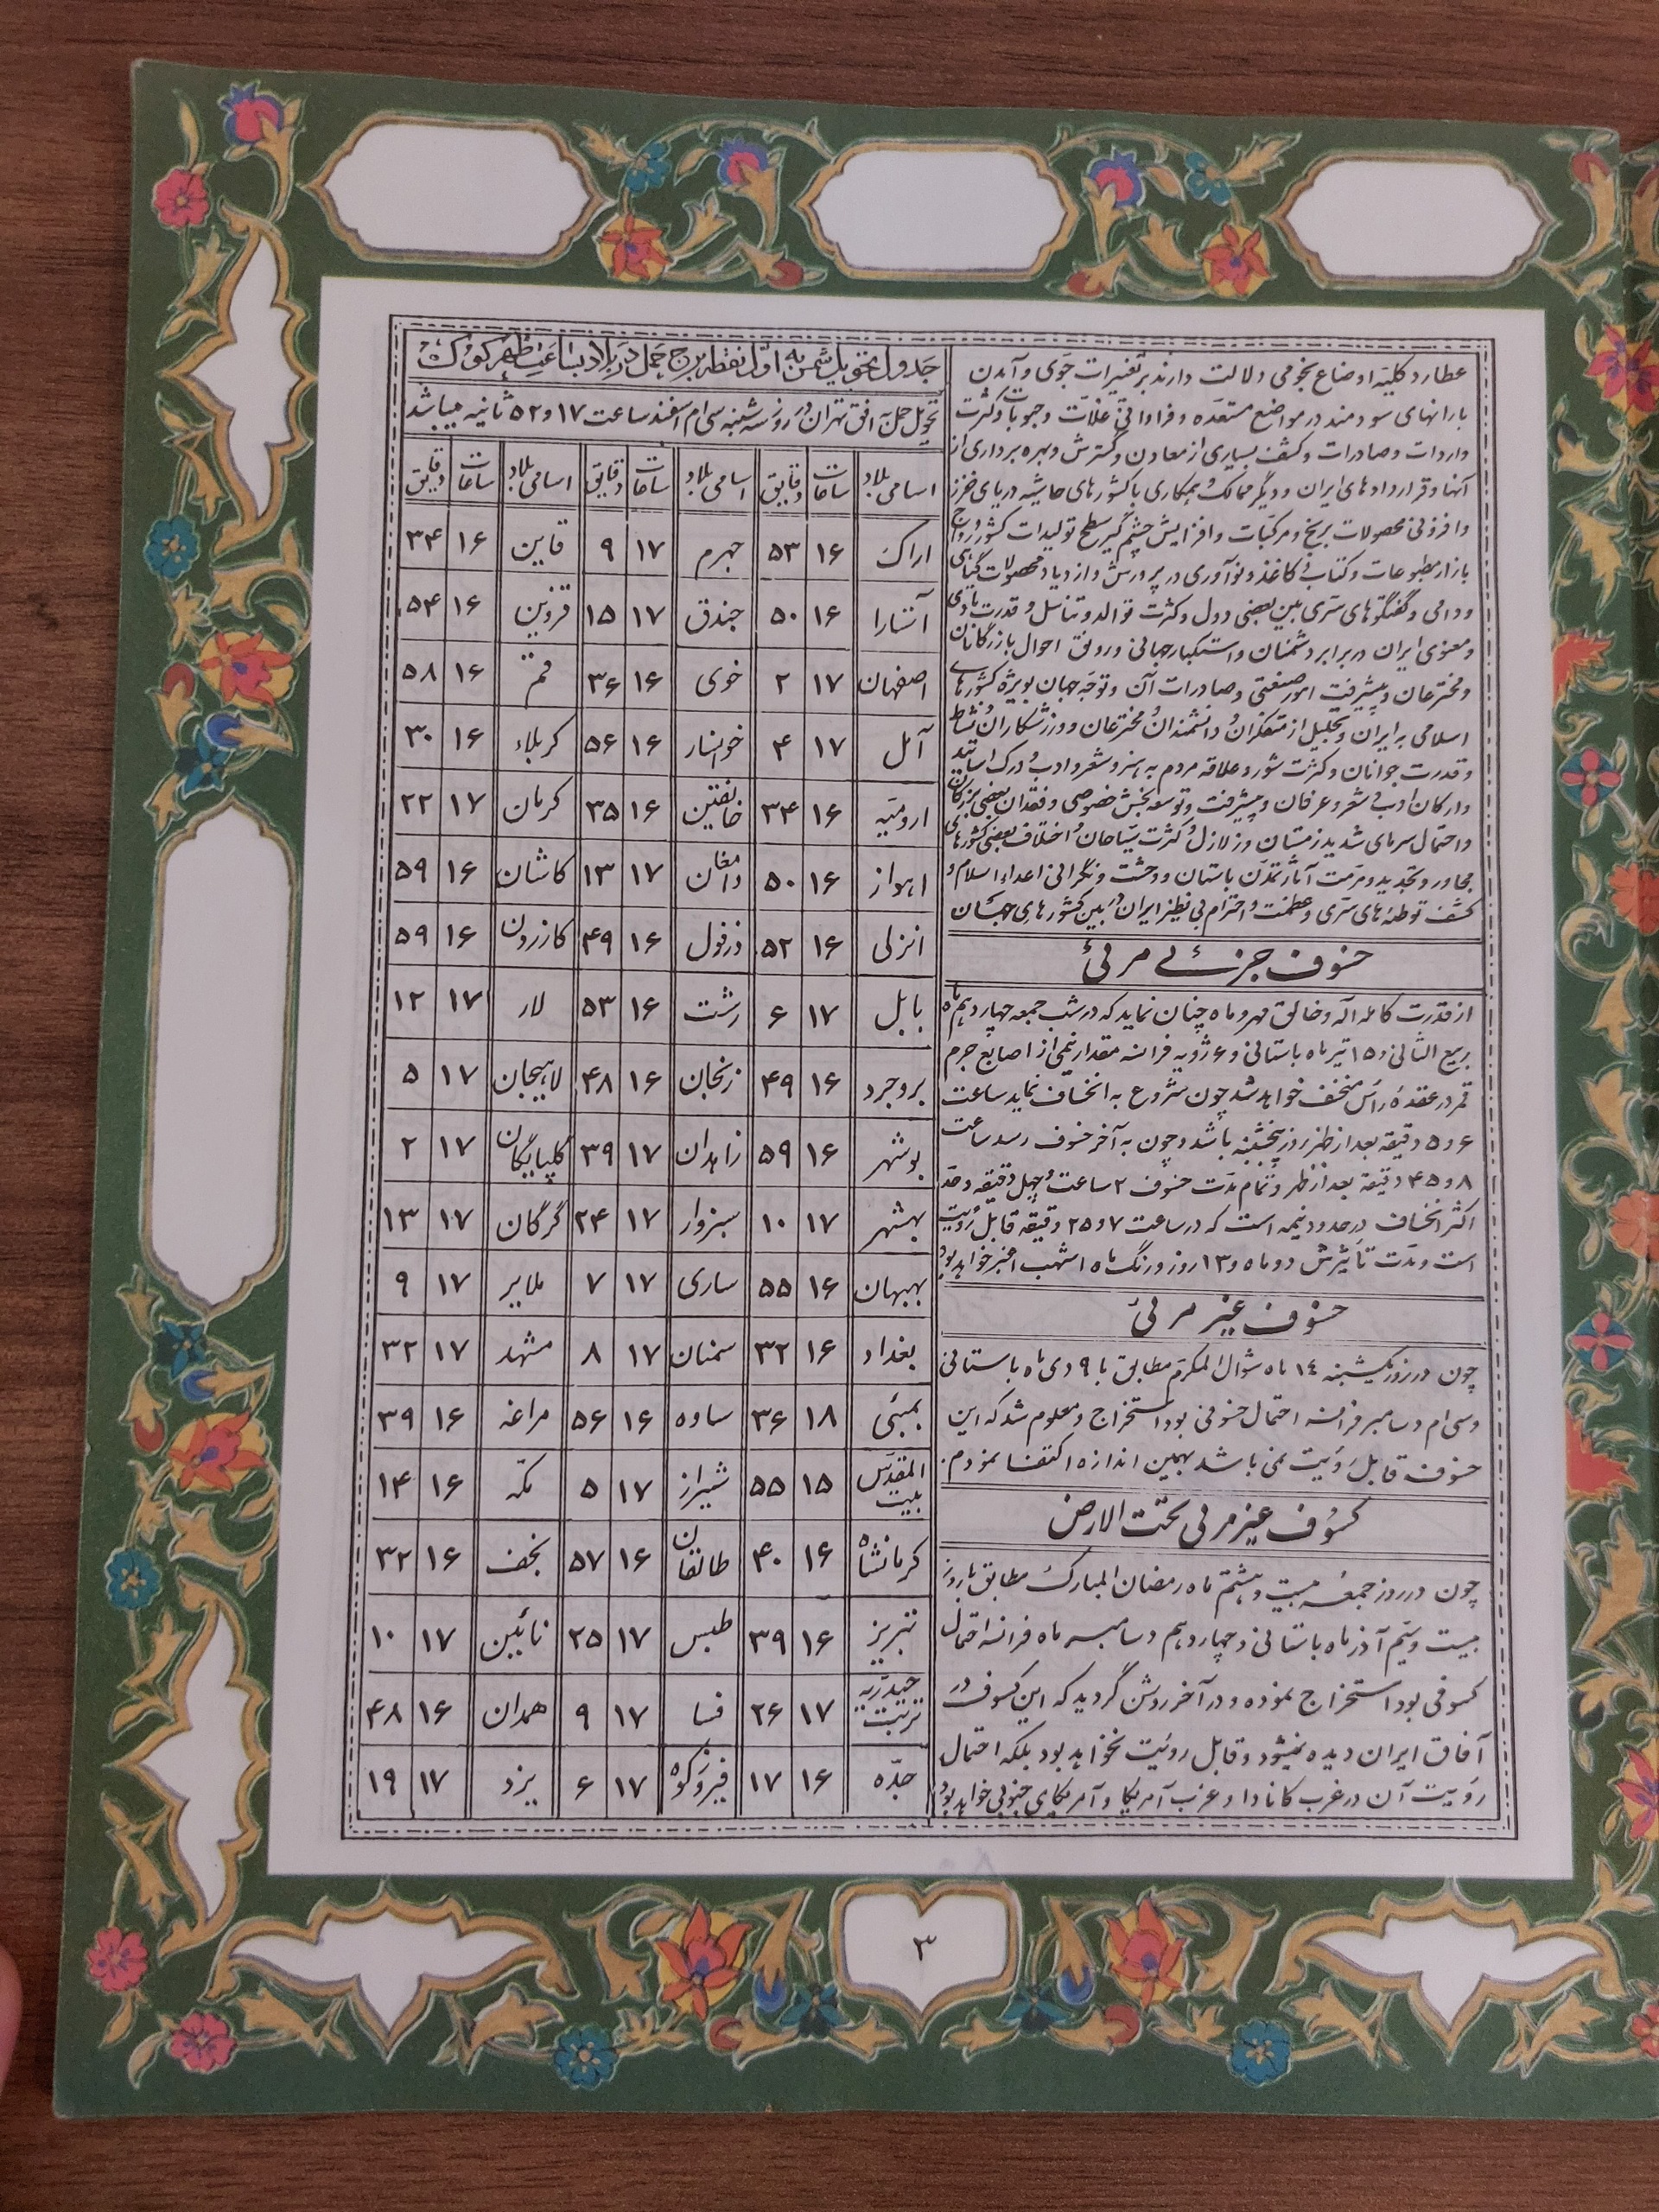 عطارد کلیهٔ اوضاع نجومی دلالت دارند بر تغییرات جوّی و آمدن
بارانهای سودمند در مواضع متعدّده و فراوانی غلّات و حبوبات و کثرت
واردات و صادرات و کشف بسیاری از معادن و گسترش و بهره برداری از
آنها و قراردادهای ایران و دیگر ممالک و همکاری با کشورهای حاشیه دریای خزر
و افزونی محصولات برنج و مرکبّات و افزایش چشم گیر سطح تولیدات کشور و رواج
بازار مطبوعات و کتاب و کاغذ و نوآوری در پرورش و ازدیاد محصولات گیاهی
و دامی و گفتگوهای سرّی بین بعضی دول و کثرت توالد و تناسل و قدرت مادّی
و معنوی ایران در برابر دشمنان و استکبار جهانی و رونق احوال بازرگانان
و مخترعان و پیشرفت امور صنعتی و صادرات آن و توجّه جهان بویژه کشورهای
اسلامی به ایران و تجلیل از متفکران و دانشمندان و مخترعان و ورزشکاران و نشاط
و قدرت جوانان و کثرت شور و علاقه مردم به هنر و شعر و ادب و درک اساتید
و ارکان ادب و شعر و عرفان و پیشرفت و توسعه بخش خصوصی و فقدان بعضی بزرگان
و احتمال سرمای شدید زمستان و زلازل و کثرت سیّاحان و اختلاف بعضی کشورهای
مجاور و تجدید و مرمت آثار تمدّن باستان و وحشت و نگرانی اعداء اسلام و
کشف توطئه‌های سرّی و عظمت و احترام بی نظیر ایران در بین کشورهای جهان
خسوف جزئی مرئی
از قدرت کامله اله و خالق مهر و ماه چنان نماید که در شب جمعه چهاردهم ماه
ربیع الثانی و ۱۵ تیر ماه باستانی و ۶ ژویه فرانسه مقدار نیمی از اصابع جرم
قمر در عقدهٔ رأس منخسف خواهد شد چون شروع به انخساف نماید ساعت
۶ و ۵ دقیقه بعد از ظهر روز پنجشنبه باشد و چون به آخر خسوف رسد ساعت
۸ و ۴۵ دقیقه بعد از ظهر و تمام مدت خسوف ۲ ساعت و چهل دقیقه و حدّ
اکثر انخساف در حدود نیمه است که در ساعت ۷ و ۲۵ دقیقه قابل رؤیت
است و مدّت تأثیرش دو ماه و ۱۳ روز و رنگ ماه اشهب اغبر خواهد بود
خسوف غیر مرئی
چون در روز یکشنبه ۱۴ ماه شوّال المکرّم مطابق با ۹ دی ماه باستانی
و سی ام دسامبر فرانسه احتمال خسوفی بود استخراج و معلوم شد که این
خسوف قابل رؤیت نمی باشد بهمین اندازه اکتفا نمودم.
کسوف غیر مرئی تحت الارض
چون در روز جمعه بیست و هشتم ماه رمضان المبارک مطابق با روز
بیست و سیّم آذر ماه باستانی و چهاردهم دسامبر ماه فرانسه احتمال
کسوفی بود استخراج نموده و در آخر روشن گردید که این کسوف در
آفاق ایران دیده نمیشود و قابل رؤیت نخواهد بود بلکه احتمال
رؤیت آن در غرب کانادا و غرب آمریکا و آمریکای جنوبی خواهد بود
جدول تحویل شمس به اوّل نقطه برج حمل در بلاد بساعت ظهر کوک
تحویل حمل به افق تهران در روز سه شنبه سی ام اسفند ساعت ۱۷ و ۵۲ ثانیه میباشد
اسامی بلاد ساعات دقایق اسامی بلاد ساعات دقایق اسامی بلاد ساعات دقایق
اراک ۱۶ ۵۳ جهرم ۱۷ ۹ قاین ۱۶ ۳۴
آستارا ۱۶ ۵۰ جندق ۱۷ ۱۵ قزوین ۱۶ ۵۴
اصفهان ۱۷ ۲ خوی ۱۶ ۳۶ قم ۱۶ ۵۸
آمل ۱۷ ۴ خوانسار ۱۶ ۵۶ کربلاء ۱۶ ۳۰
ارومیّه ۱۶ ۳۴ خانقین ۱۶ ۳۵ کرمان ۱۷ ۲۲
اهواز ۱۶ ۵۰ دامغان ۱۷ ۱۳ کاشان ۱۶ ۵۹
انزلی ۱۶ ۵۲ دزفول ۱۶ ۴۹ کازرون ۱۶ ۵۹
بابل ۱۷ ۶ رشت ۱۶ ۵۳ لار ۱۷ ۱۲
بروجرد ۱۶ ۴۹ زنجان ۱۶ ۴۸ لاهیجان ۱۷ ۵
بوشهر ۱۶ ۵۹ زاهدان ۱۷ ۳۹ گلپایگان ۱۷ ۲
بهشهر ۱۷ ۱۰ سبزوار ۱۷ ۲۴ گرگان ۱۷ ۱۳
بهبهان ۱۶ ۵۵ ساری ۱۷ ۷ ملایر ۱۷ ۹
بغداد ۱۶ ۳۲ سمنان ۱۷ ۸ مشهد ۱۷ ۳۲
بمبئی ۱۸ ۳۶ ساوه ۱۶ ۵۶ مراغه ۱۶ ۳۹
بیت المقدّس ۱۵ ۵۵ شیراز ۱۷ ۵ مکّه ۱۶ ۱۴
کرمانشاه ۱۶ ۴۰ طالقان ۱۶ ۵۷ نجف ۱۶ ۳۲
تبریز ۱۶ ۳۹ طبس ۱۷ ۲۵ نائین ۱۷ ۱۰
تربت حیدریّه ۱۷ ۲۶ فسا ۱۷ ۹ همدان ۱۶ ۴۸
جدّه ۱۶ ۱۷ فیروزکوه ۱۷ ۶ یزد ۱۷ ۱۹
۳